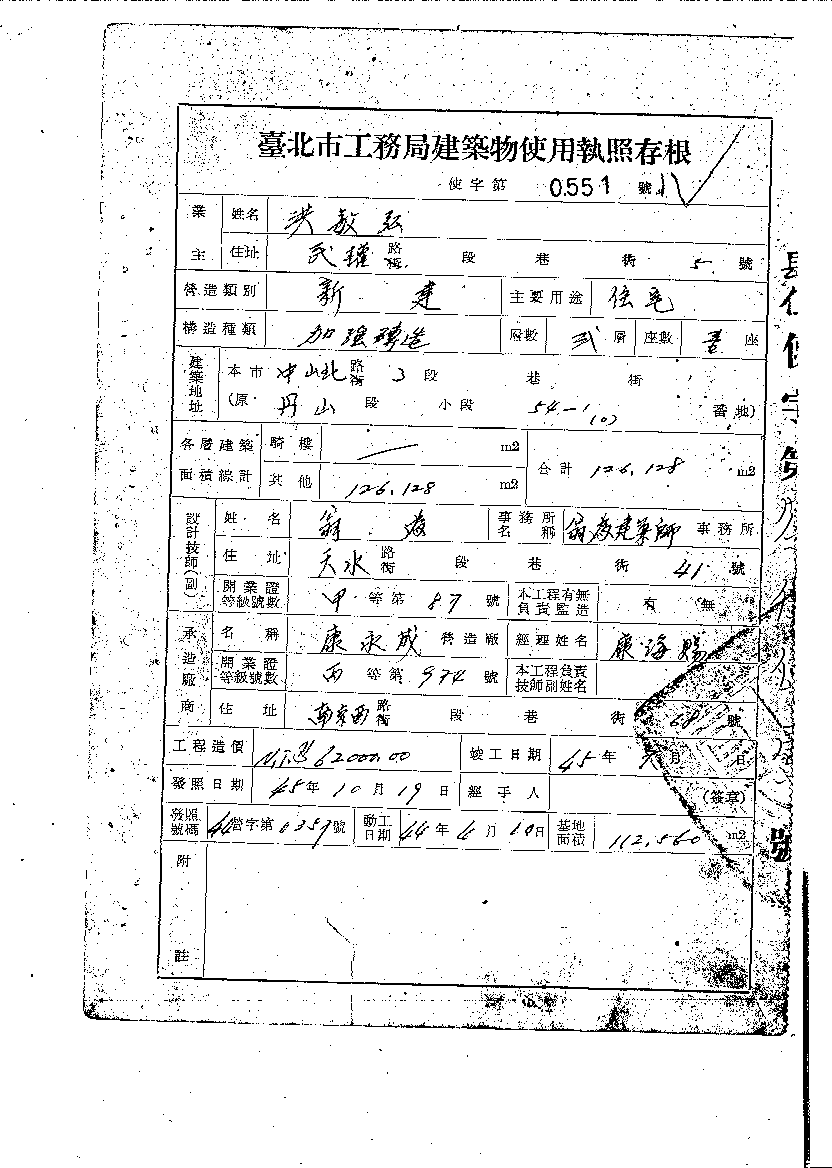 臺北市工務局建築物使用執照存根
使字第 0551 號
業主 姓名 洪敏弘
住址 民權 路街 段 巷 街 5 號
營造類別 新建 主要用途 住宅
構造種類 加強磚造 層數 弍 層 座數 壹 座
建築地址 本市 中山北 路街 3 段 巷 街
(原 丹山 段 小段 54-1 番地)
各層建築面積總計 騎樓 m2 合計 126.128 m2
其他 126.128 m2
設計技師(副) 姓名 翁 事務所名稱 建築師 事務所
住址 天水 路街 段 巷 街 41 號
開業證等級號數 甲 等第 87 號 本工程有無負責監造 有 無
承造廠商 名稱 康永成 營造廠 經理姓名 康海賜
開業證等級號數 丙 等第 974 號 本工程負責技師副姓名
住址 南京西 路街 段 巷 街 號
工程造價 N.T.$ 62000.00 竣工日期 45 年 月 日
發照日期 45 年 10 月 19 日 經手人 (簽章)
發照號碼 44 營字第 0359 號 動工日期 44 年 4 月 10 日 基地面積 112.560 m2
附註
號